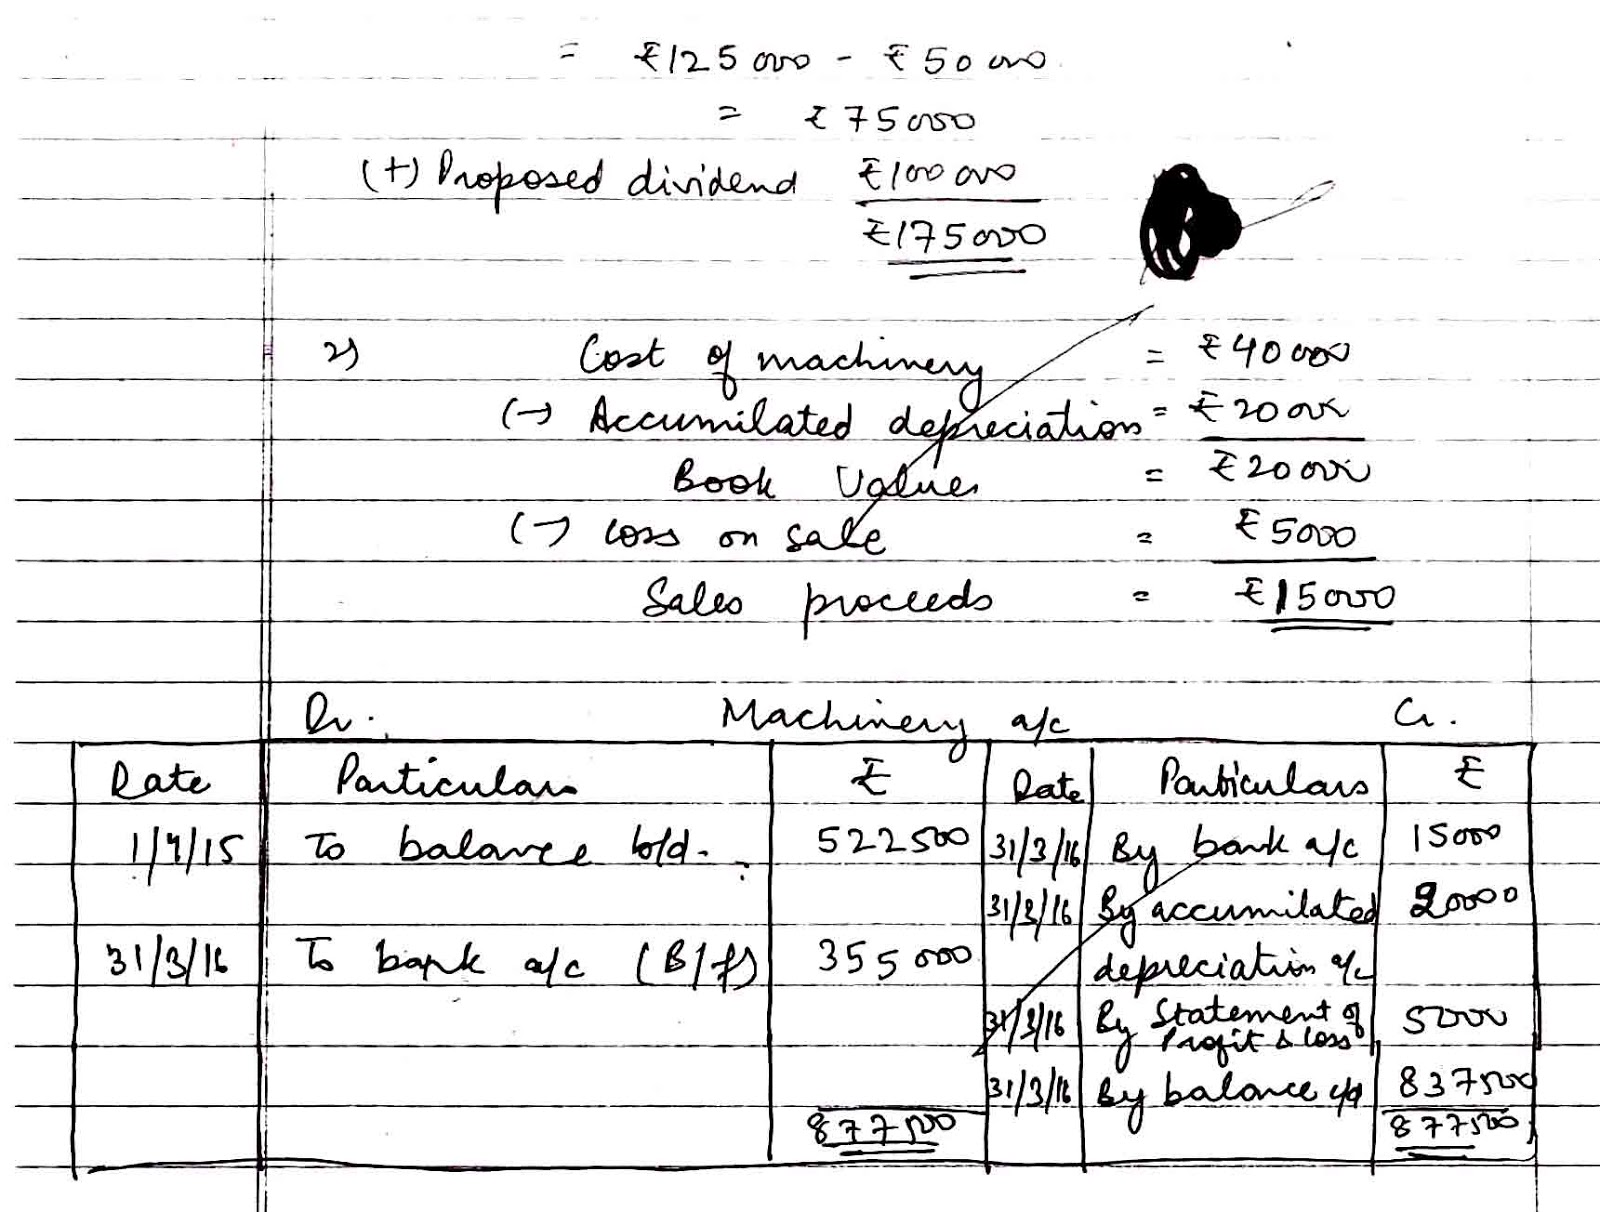 = ₹125000 - ₹50000
= ₹75000
(+) Proposed dividend ₹100000
₹175000
2) Cost of machinery = ₹40000
(-) Accumilated depreciation = ₹20000
Book Value = ₹20000
(-) Loss on sale = ₹5000
Sales proceeds = ₹15000
Dr. Machinery a/c Cr.
Date Particulars ₹ Date Particulars ₹
1/4/15 To balance b/d. 522500 31/3/16 By bank a/c 15000
31/3/16 By accumilated 20000
31/3/16 To bank a/c (B/f) 355000 depreciation a/c
31/3/16 By Statement of 5000
Profit & loss
31/3/16 By balance c/d 837500
877500 877500